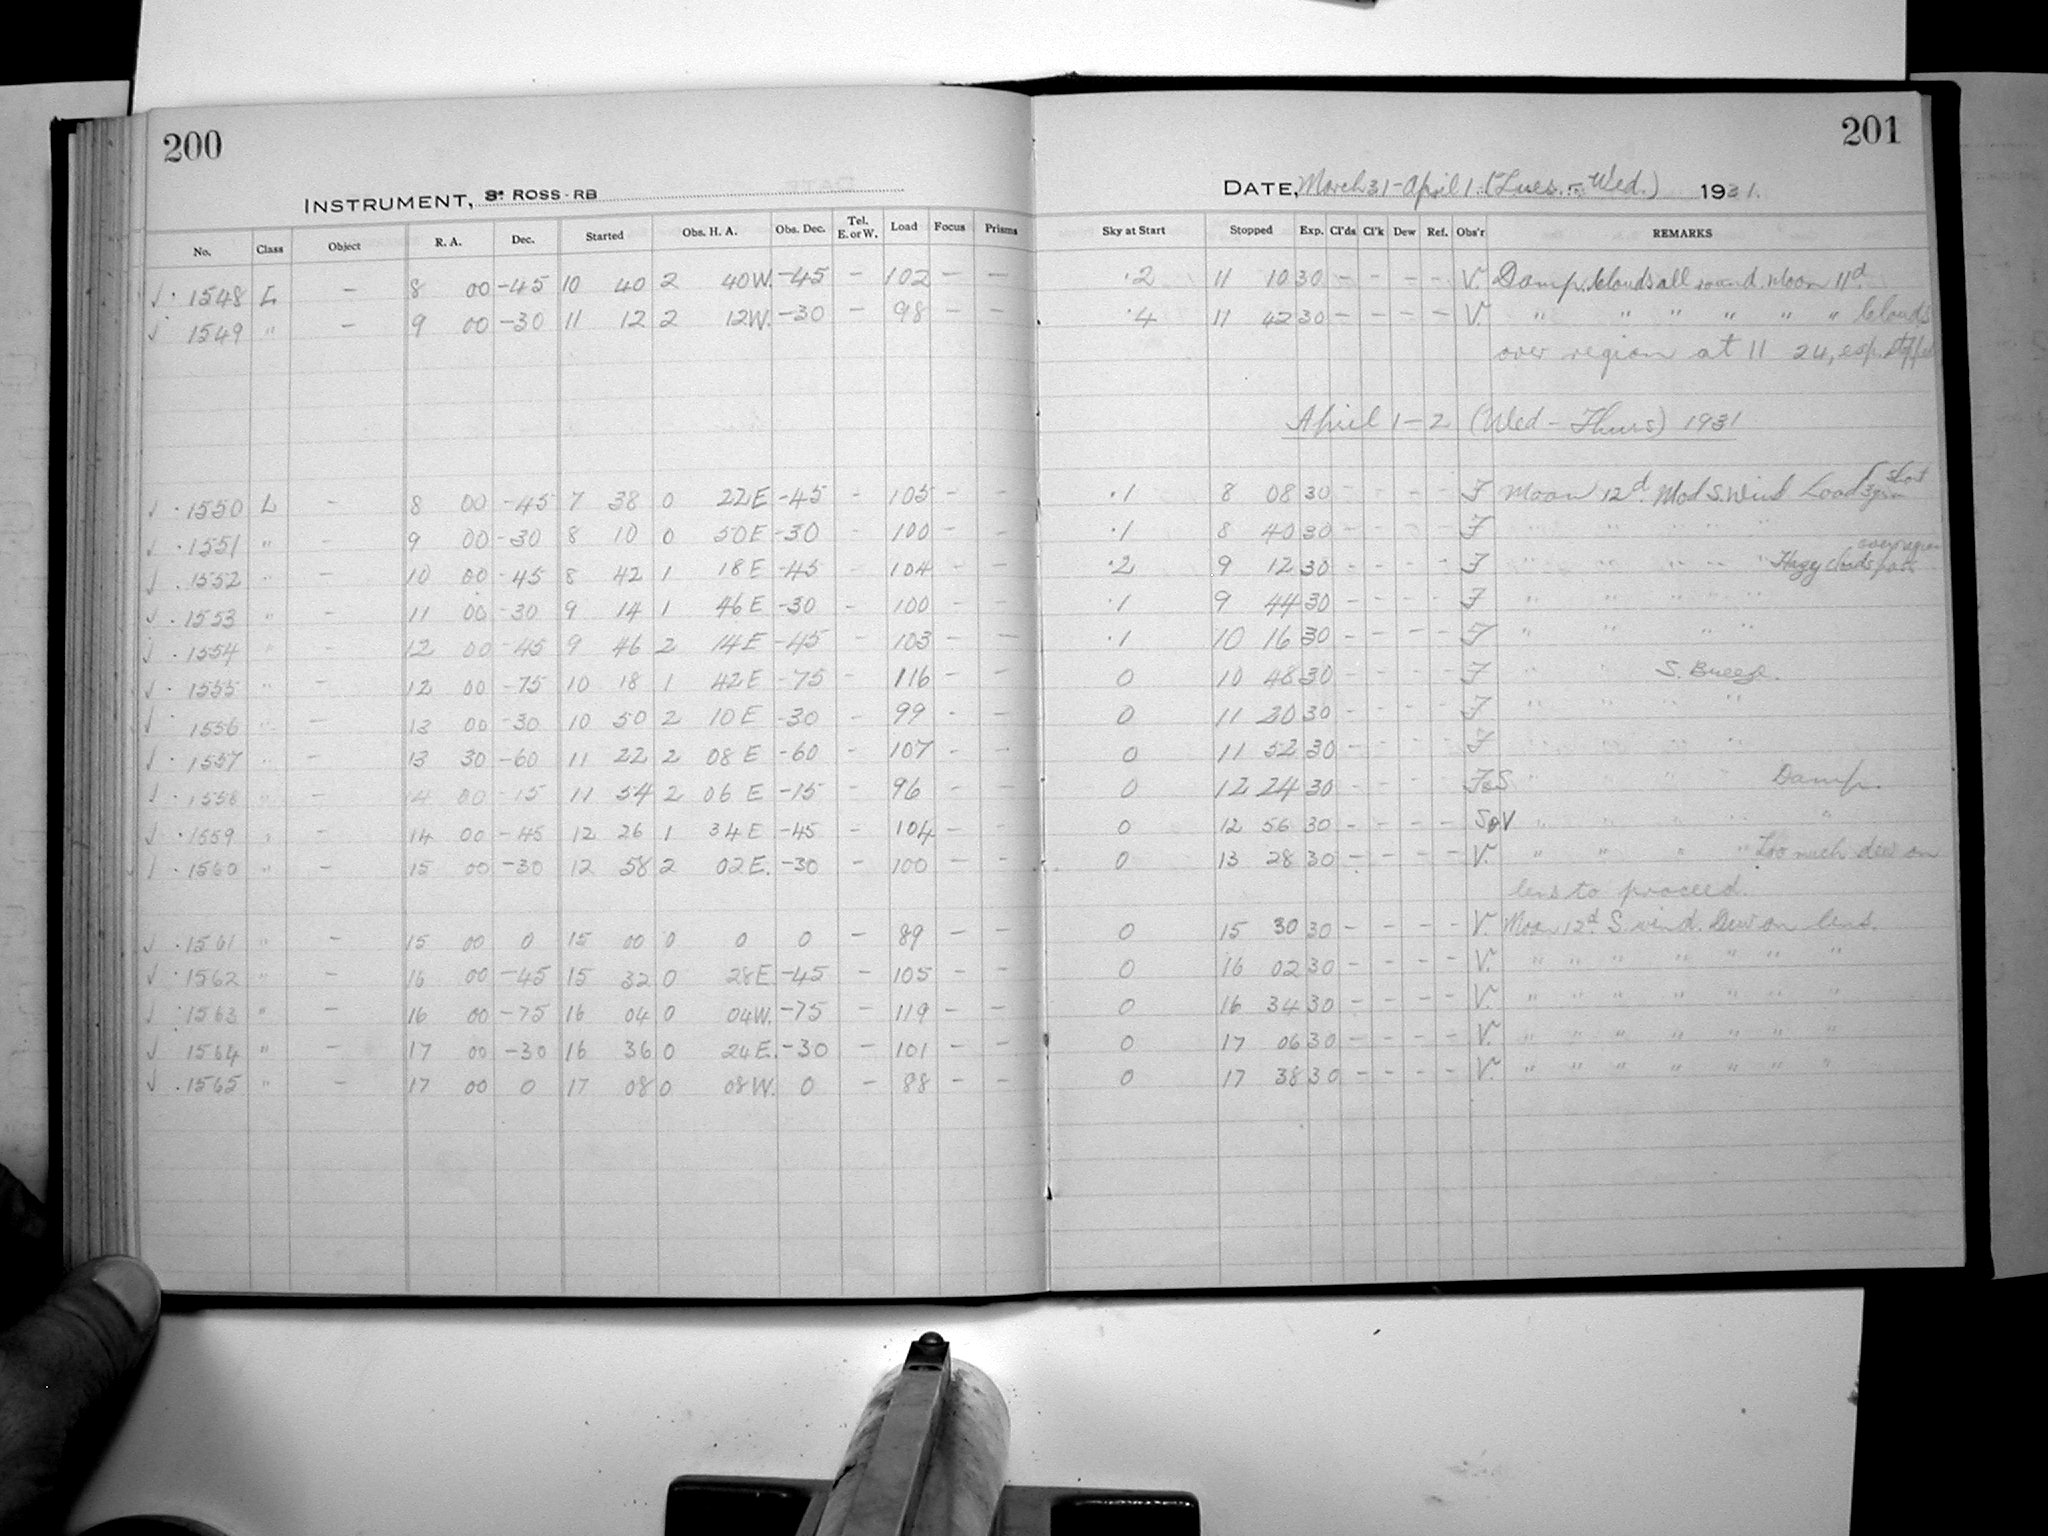 200
INSTRUMENT, 3" ROSS-RB
No. Class Object R. A. Dec. Started Obs. H. A. Obs. Dec. Tel. E. or W. Load Focus Prisms
√ · 1548 L — 8 00 -45 10 40 2 40W. -45 — 102 — —
√ 1549 " — 9 00 -30 11 12 2 12W. -30 — 98 — —
√ · 1550 L — 8 00 -45 7 38 0 22E -45 - 105 - -
√ · 1551 " - 9 00 -30 8 10 0 50E -30 100 - -
√ . 1552 " - 10 00 -45 8 42 1 18E -45 - 104 - -
√ . 1553 " - 11 00 -30 9 14 1 46E -30 - 100 - -
√ . 1554 " - 12 00 -45 9 46 2 14E -45 - 103 - -
√ · 1555 " - 12 00 -75 10 18 1 42E -75 - 116 - -
√ 1556 " - 13 00 -30 10 50 2 10E -30 - 99 - -
√ · 1557 " - 13 30 -60 11 22 2 08E -60 - 107 - -
√ · 1558 " - 14 00 -15 11 54 2 06 E -15 - 96 - -
√ · 1559 " - 14 00 -45 12 26 1 34E -45 - 104 - -
√ · 1560 " - 15 00 -30 12 58 2 02E. -30 - 100 - -
√ · 1561 " - 15 00 0 15 00 0 0 0 - 89 - -
√ · 1562 " - 16 00 -45 15 32 0 28E -45 - 105 - -
√ · 1563 " - 16 00 -75 16 04 0 04W. -75 - 119 - -
√ · 1564 " - 17 00 -30 16 36 0 24E. -30 - 101 - -
√ . 1565 " - 17 00 0 17 08 0 08W. 0 - 88 - -
201
DATE, March 31-April 1. (Tues. - Wed.) 1931.
Sky at Start Stopped Exp. Cl'ds Cl'k Dew Ref. Obs'r REMARKS
·2 11 10 30 - - - - V. Damp. Clouds all round. Moon 11d.
·4 11 42 30 - - - - V. " " " " " " Clouds
over region at 11 24, esp.
April 1-2 (Wed - Thurs) 1931
·1 8 08 30 - - - - F Moon 12d. Mod S. Wind Load
·1 8 40 30 - - - - F " " " " "
over region
·2 9 12 30 - - - - F " " " " " Hazy clouds
·1 9 44 30 - - - - F " " " " "
·1 10 16 30 - - - - F " " " "
0 10 48 30 - - - - F " " S. Breeze.
0 11 20 30 - - - - F " " " "
0 11 52 30 - - - - F " " " "
0 12 24 30 - - - - F&S " " " " Damp.
0 12 56 30 - - - - S&V " " " " "
0 13 28 30 - - - - V. " " " " Too much dew on
lens to proceed.
0 15 30 30 - - - - V. Moon 12d S. wind. Dew on lens.
0 16 02 30 - - - - V. " " " " " " "
0 16 34 30 - - - - V. " " " " " " "
0 17 06 30 - - - - V. " " " " " " "
0 17 38 30 - - - - V. " " " " " " "